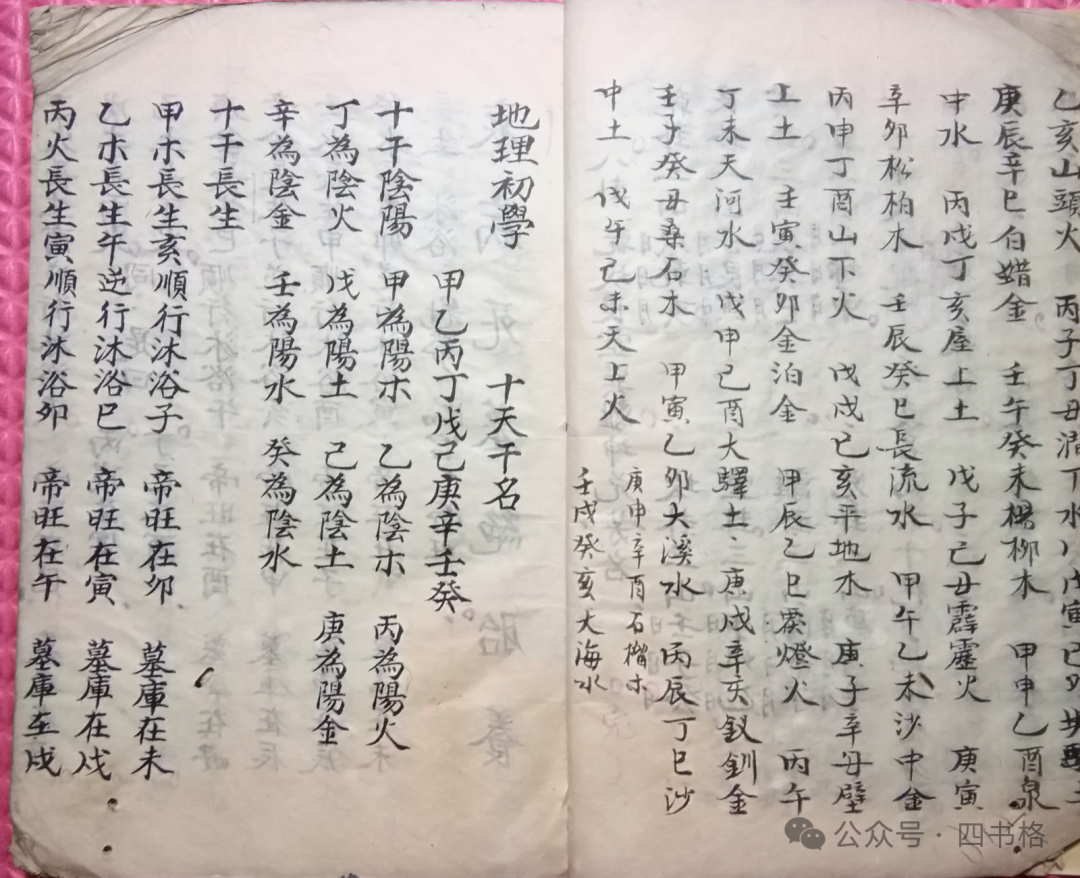 乙亥山頭火 丙子丁丑澗丁水 戊寅己卯
庚辰辛巳白蜡金 壬午癸未楊柳木 甲申乙酉泉
中水 丙戌丁亥屋上土 戊子己丑霹靂火 庚寅
辛卯松柏木 壬辰癸巳長流水 甲午乙未沙中金
丙申丁酉山下火 戊戌己亥平地木 庚子辛丑壁
上土 壬寅癸卯金泊金 甲辰乙巳燈火 丙午
丁未天河水 戊申己酉大驛土 庚戌辛亥釵釧金
壬子癸丑桑石木 甲寅乙卯大溪水 丙辰丁巳沙
中土 戊午己未天上火 庚申辛酉石榴木
壬戌癸亥大海水
地理初學 十天干名
甲乙丙丁戊己庚辛壬癸
十干陰陽 甲為陽木 乙為陰木 丙為陽火
丁為陰火 戊為陽土 己為陰土 庚為陽金
辛為陰金 壬為陽水 癸為陰水
十干長生
甲木長生亥順行沐浴子 帝旺在卯 墓庫在未
乙木長生午逆行沐浴巳 帝旺在寅 墓庫在戌
丙火長生寅順行沐浴卯 帝旺在午 墓庫在戌
公众号·四书格